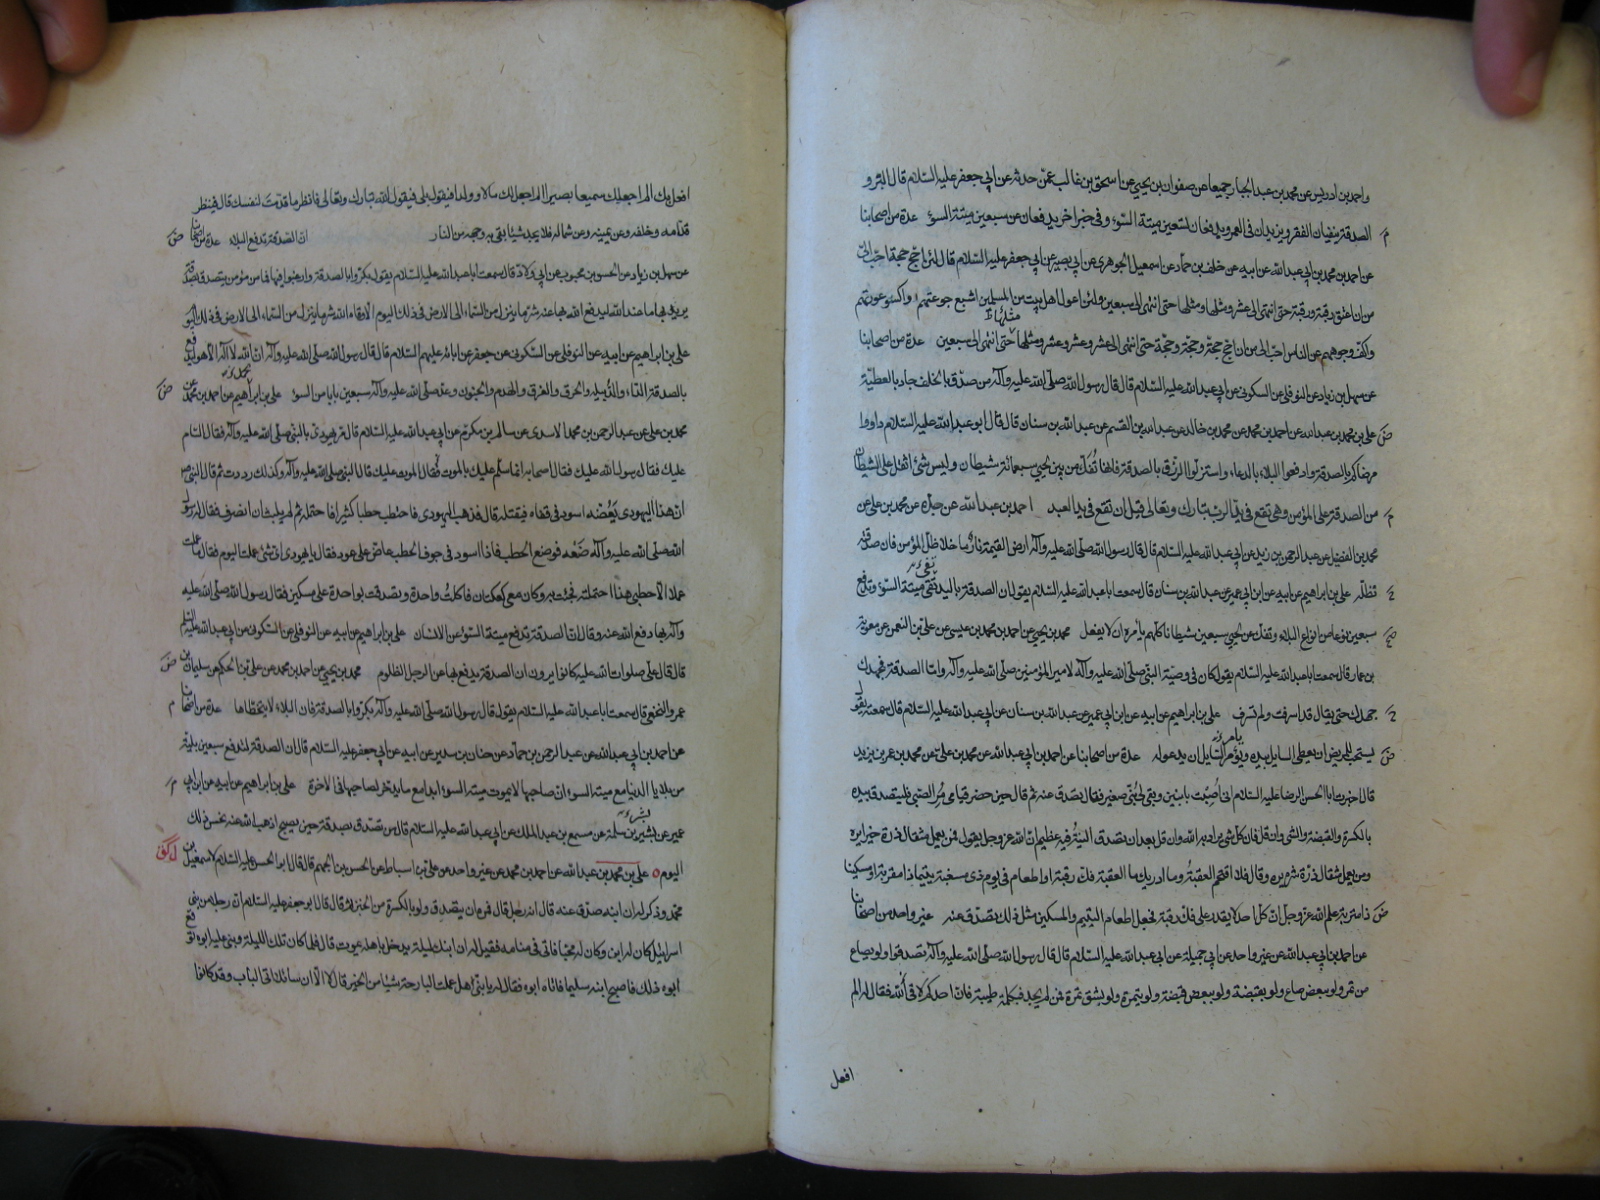 واحمد بن ادريس عن محمد بن عبد الجبار جميعا عن صفوان بن يحيى عن اسحق بن غالب عمن حدثه عن ابي جعفر عليه السلام قال البر و
الصدقة ينفيان الفقر ويزيدان فى العمر ويدفعان تسعين ميتة السوء وفى خبر اخر يدفعان عن سبعين ميتة السوء عدة من اصحابنا
عن احمد بن محمد بن ابي عبد الله عن ابيه عن خلف بن حماد عن اسمعيل الجوهرى عن ابي بصير عن ابي جعفر عليه السلام قال لئن احج حجة احب الى
من ان اعتق رقبة ورقبة حتى انتهى الى عشر ومثلها ومثلها حتى انتهى الى سبعين ولئن اعول اهل بيت من المسلمين اشبع جوعتهم واكسو عورتهم
واكف وجوههم عن الناس احب الى من ان احج حجة وحجة وحجة حتى انتهى الى عشر وعشر وعشر ومثلها حتى انتهى الى سبعين عدة من اصحابنا
عن سهل بن زياد عن النوفلى عن السكونى عن ابي عبد الله عليه السلام قال قال رسول الله صلى الله عليه وآله من صدق بالخلف جاد بالعطية
على بن محمد بن عبد الله عن احمد بن محمد عن محمد بن خالد عن عبد الله بن القسم عن عبد الله بن سنان قال قال ابو عبد الله عليه السلام داووا
مرضاكم بالصدقة وادفعوا البلاء بالدعاء واستنزلوا الرزق بالصدقة فانها تفك من بين لحيى سبعمائة شيطان وليس شئ اثقل على الشيطان
من الصدقة على المؤمن وهى تقع فى يد الرب تبارك وتعالى قبل ان تقع فى يد العبد احمد بن عبد الله عن جده عن محمد بن على عن
محمد بن الفضيل عن عبد الرحمن بن زيد عن ابي عبد الله عليه السلام قال قال رسول الله صلى الله عليه وآله ارض القيمة نار ما خلا ظل المؤمن فان صدقته
تظله على بن ابراهيم عن ابيه عن ابن ابي عمير عن عبد الله بن سنان قال سمعت ابا عبد الله عليه السلام يقول ان الصدقة باليد تقى ميتة السوء وتدفع
سبعين نوعا من انواع البلاء وتفك عن لحيى سبعين شيطانا كلهم يأمره ان لا يفعل محمد بن يحيى عن احمد بن محمد بن عيسى عن على بن النعمن عن معوية
بن عمار قال سمعت ابا عبد الله عليه السلام يقول كان فى وصية النبى صلى الله عليه وآله لامير المؤمنين صلى الله عليه وآله واما الصدقة فجهدك
جهدك حتى يقال قد اسرفت ولم تسرف على بن ابراهيم عن ابيه عن ابن ابي عمير عن عبد الله بن سنان عن ابي عبد الله عليه السلام قال سمعته يقول
يستحب للمريض ان يعطى السايل بيده ويؤمر السايل ان يدعو له عدة من اصحابنا عن احمد بن ابي عبد الله عن محمد بن على عن محمد بن عمر بن يزيد
قال اخبرت ابا الحسن الرضا عليه السلام انى اصبت بابنين وبقى لى بنى صغير فقال تصدق عنه ثم قال حين حضر قيامى مر الصبى فليتصدق بيده
بالكسرة والقبضة والشئ وان قل فان كل شئ يراد به الله وان قل بعد ان تصدق النية فيه عظيم ان الله عز وجل يقول فمن يعمل مثقال ذرة خيرا يره
ومن يعمل مثقال ذرة شرا يره وقال فلا اقتحم العقبة وما ادريك ما العقبة فك رقبة او اطعام فى يوم ذى مسغبة يتيما ذا مقربة او مسكينا
ذا متربة علم الله عز وجل ان كل احد لا يقدر على فك رقبة فجعل اطعام اليتيم والمسكين مثل ذلك تصدق عنه غير واحد من اصحابنا
عن احمد بن ابي عبد الله عن غير واحد عن ابي جميلة عن ابي عبد الله عليه السلام قال قال رسول الله صلى الله عليه وآله تصدقوا ولو بصاع
من تمر ولو ببعض صاع ولو بقبضة ولو ببعض قبضة ولو بتمرة ولو بشق تمرة فمن لم يجد فبكلمة طيبة فان احدكم لاقى الله فقال له الم
افعل
افعل بك الم اجعلك سميعا بصيرا الم اجعل لك مالا وولدا فيقول بلى فيقول الله تبارك وتعالى فانظر ما قدمت لنفسك قال فينظر
قدامه وخلفه وعن يمينه وعن شماله فلا يجد شيئا يقى به وجهه من النار ان الصدقة تدفع البلاء عدة من اصحابنا
عن سهل بن زياد عن الحسن بن محبوب عن ابي ولاد قال سمعت ابا عبد الله عليه السلام يقول بكروا بالصدقة وارغبوا فيها فما من مؤمن يتصدق بصدقة
يريد بها ما عند الله ليدفع الله بها عنه شر ما ينزل من السماء الى الارض فى ذلك اليوم الا وقاه الله شر ما ينزل من السماء الى الارض فى ذلك اليوم
على بن ابراهيم عن ابيه عن النوفلى عن السكونى عن جعفر عن ابائه عليهم السلام قال قال رسول الله صلى الله عليه وآله ان الله لا اله الا هو ليدفع
بالصدقة الداء والدبيلة والحرق والغرق والهدم والجنون وعد صلى الله عليه وآله سبعين بابا من السوء على بن ابراهيم عن احمد بن محمد عن
محمد بن على عن عبد الرحمن بن محمد الاسدى عن سالم بن مكرم عن ابي عبد الله عليه السلام قال مر يهودى بالنبى صلى الله عليه وآله فقال السام
عليك فقال رسول الله عليك فقال اصحابه انما سلم عليك بالموت فقال الموت عليك قال النبى صلى الله عليه وآله وكذلك رددت ثم قال النبى ص
ان هذا اليهودى يعضه اسود فى قفاه فيقتله قال فذهب اليهودى فاحتطب حطبا كثيرا فاحتمله ثم لم يلبث ان انصرف فقال له رسول
الله صلى الله عليه وآله ضعه فوضع الحطب فاذا اسود فى جوف الحطب عاض على عود فقال يا يهودى اى شئ عملت اليوم فقال ما عملت
عملا الا حطبى هذا احتملته فجئت به وكان معى كعكتان فاكلت واحدة وتصدقت بواحدة على مسكين فقال رسول الله صلى الله عليه
وآله بها دفع الله عنه وقال ان الصدقة تدفع ميتة السوء عن الانسان على بن ابراهيم عن ابيه عن النوفلى عن السكونى عن ابي عبد الله عليه السلم
قال قال على صلوات الله عليه كانوا يرون ان الصدقة يدفع بها عن الرجل الظلوم محمد بن يحيى عن احمد بن محمد عن على بن الحكم عن سليمان بن
عمرو النخعى قال سمعت ابا عبد الله عليه السلام يقول قال رسول الله صلى الله عليه وآله بكروا بالصدقة فان البلاء لا يتخطاها عدة من اصحابنا
عن احمد بن ابي عبد الله عن عبد الرحمن بن حماد عن حنان بن سدير عن ابيه عن ابي جعفر عليه السلام قال ان الصدقة لتدفع سبعين بلية
من بلايا الدنيا مع ميتة السوء ان صاحبها لا يموت ميتة السوء ابدا مع ما يدخر لصاحبها فى الاخرة على بن ابراهيم عن ابيه عن ابن ابي
عمير عن بشير بن سلمة عن مسمع بن عبد الملك عن ابي عبد الله عليه السلام قال من تصدق بصدقة حين يصبح اذهب الله عنه نحس ذلك
اليوم على بن محمد بن عبد الله عن احمد بن محمد عن غير واحد عن على بن اسباط عن الحسن بن الجهم قال قال ابو الحسن عليه السلام لاسمعيل بن
محمد وذكر له ان ابنه صدق عنه قال انه رجل قال فمره ان يتصدق ولو بالكسرة من الخبز ثم قال قال ابو جعفر عليه السلام ان رجلا من بنى
اسرائيل كان له ابن وكان له محبا فاتى فى منامه فقيل له ان ابنك ليلة يدخل باهله يموت قال فلما كان تلك الليلة وبنى عليه ابوه توقع
ابوه ذلك فاصبح ابنه سليما فاتاه ابوه فقال له يا بنى هل عملت البارحة شيئا من الخير قال لا الا ان سائلا اتى الباب وقد كانوا